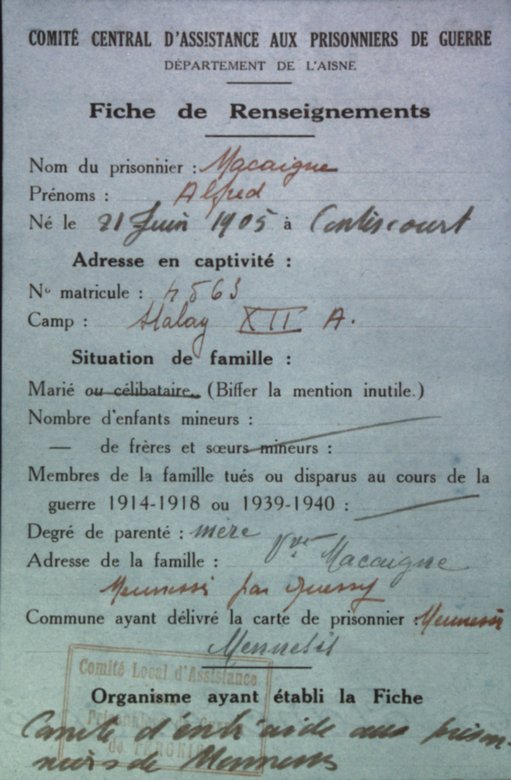 COMITÉ CENTRAL D'ASSISTANCE AUX PRISONNIERS DE GUERRE
DÉPARTEMENT DE L'AISNE
Fiche de Renseignements
Nom du prisonnier : Macaigne
Prénoms : Alfred
Né le 21 Juin 1905 à Contescourt
Adresse en captivité :
No matricule : 4563
Camp : Stalag XII A.
Situation de famille :
Marié ou célibataire. (Biffer la mention inutile.)
Nombre d'enfants mineurs :
— de frères et sœurs mineurs :
Membres de la famille tués ou disparus au cours de la
guerre 1914-1918 ou 1939-1940 :
Degré de parenté : mère
Adresse de la famille : Vve Macaigne
Mennessis par
Commune ayant délivré la carte de prisonnier : Mennessis
Mennessis
Comité Local d'Assistance
Prisonniers de Guerre
de TERGNIER
Organisme ayant établi la Fiche
Comité d'entr'aide aux prison-
niers de Mennessis